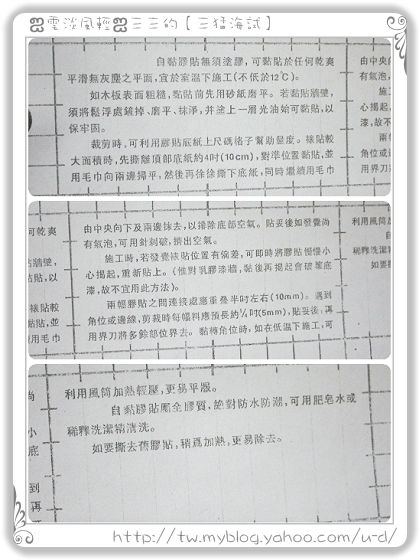 雲淡風輕 三三的【三猛海試】
自黏膠貼無須塗膠,可黏貼於任何乾爽
平滑無灰塵之平面,宜於室溫下施工(不低於12℃)。
如木板表面粗糙,黏貼前先用砂紙磨平。若黏貼牆壁,
須將鬆浮處鏟掉、磨平、抹淨,并塗上一層光油始可黏貼,以
保牢固。
裁剪時,可利用膠貼底紙上尺碼格子幫助量度。裱貼較
大面積時,先撕離頂部底紙約4吋(10cm),對準位置黏貼,並
用毛巾向兩邊掃平,然後再徐徐撕下底紙,同時繼續用毛巾
由中央
有氣泡,
施工
心揭起,
漆,故不
兩
角位或
用界刀
何乾爽
貼牆壁,
貼,以
裱貼較
貼,並
用毛巾
由中央向下及兩邊抹去,以排除底部空氣。貼妥後如發覺尚
有氣泡,可用針刺破,擠出空氣。
施工時,若發覺裱貼位置有偏差,可即時將膠貼慢慢小
心揭起,重新貼上。(惟對乳膠漆牆,黏後再揭起會破壞底
漆,故不宜用此方法)。
兩幅膠貼之間連接處應重疊半吋左右(10mm)。遇到
角位或邊線,剪裁時每幅料應預長約¼吋(5mm),貼妥後,再
用界刀將多餘部位界去。黏轉角位時,如在低溫下施工,可
利用風筒加
自
稀釋洗潔
如要
尚
小
底
到
再
利用風筒加熱輕壓,更易平服。
自黏膠貼屬全膠質,絕對防水防潮,可用肥皂水或
稀釋洗潔精清洗。
如要撕去舊膠貼,稍爲加熱,更易除去。
http://tw.myblog.yahoo.com/u-d/